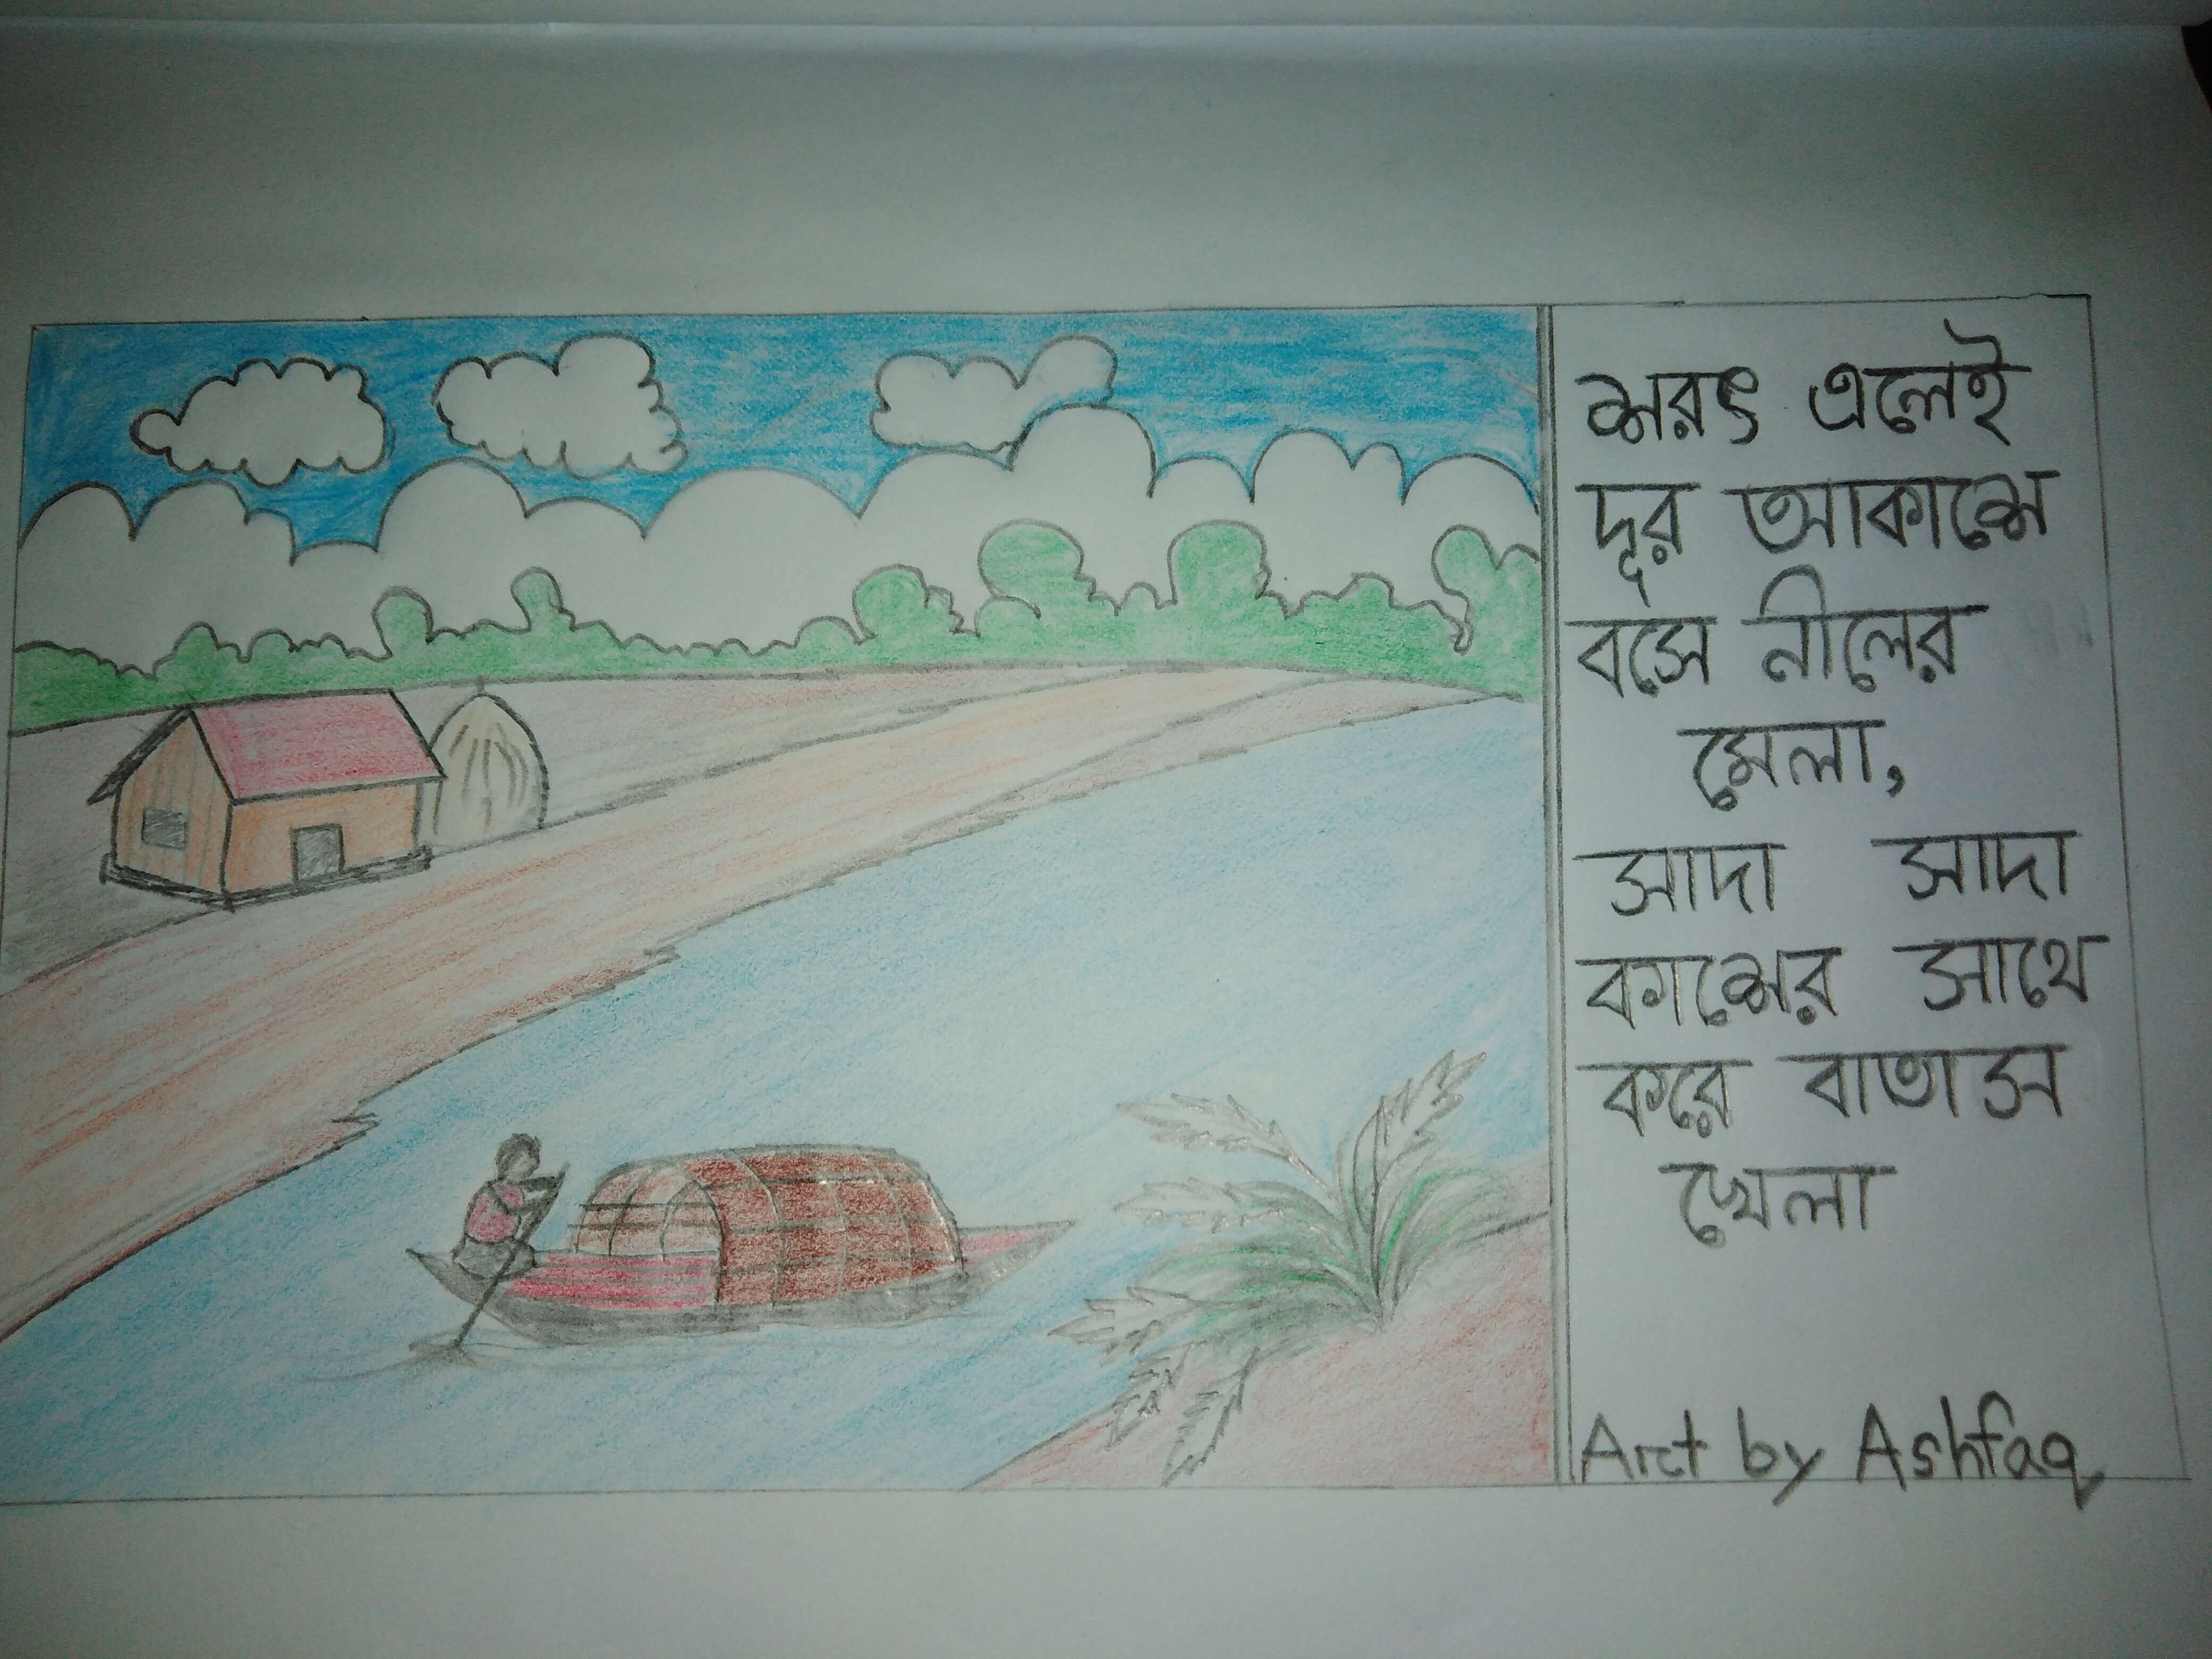 শরৎ এলেই
দূর আকাশে
বসে নীলের
মেলা,
সাদা সাদা
কাশের সাথে
করে বাতাস
খেলা
Art by Ashfaq